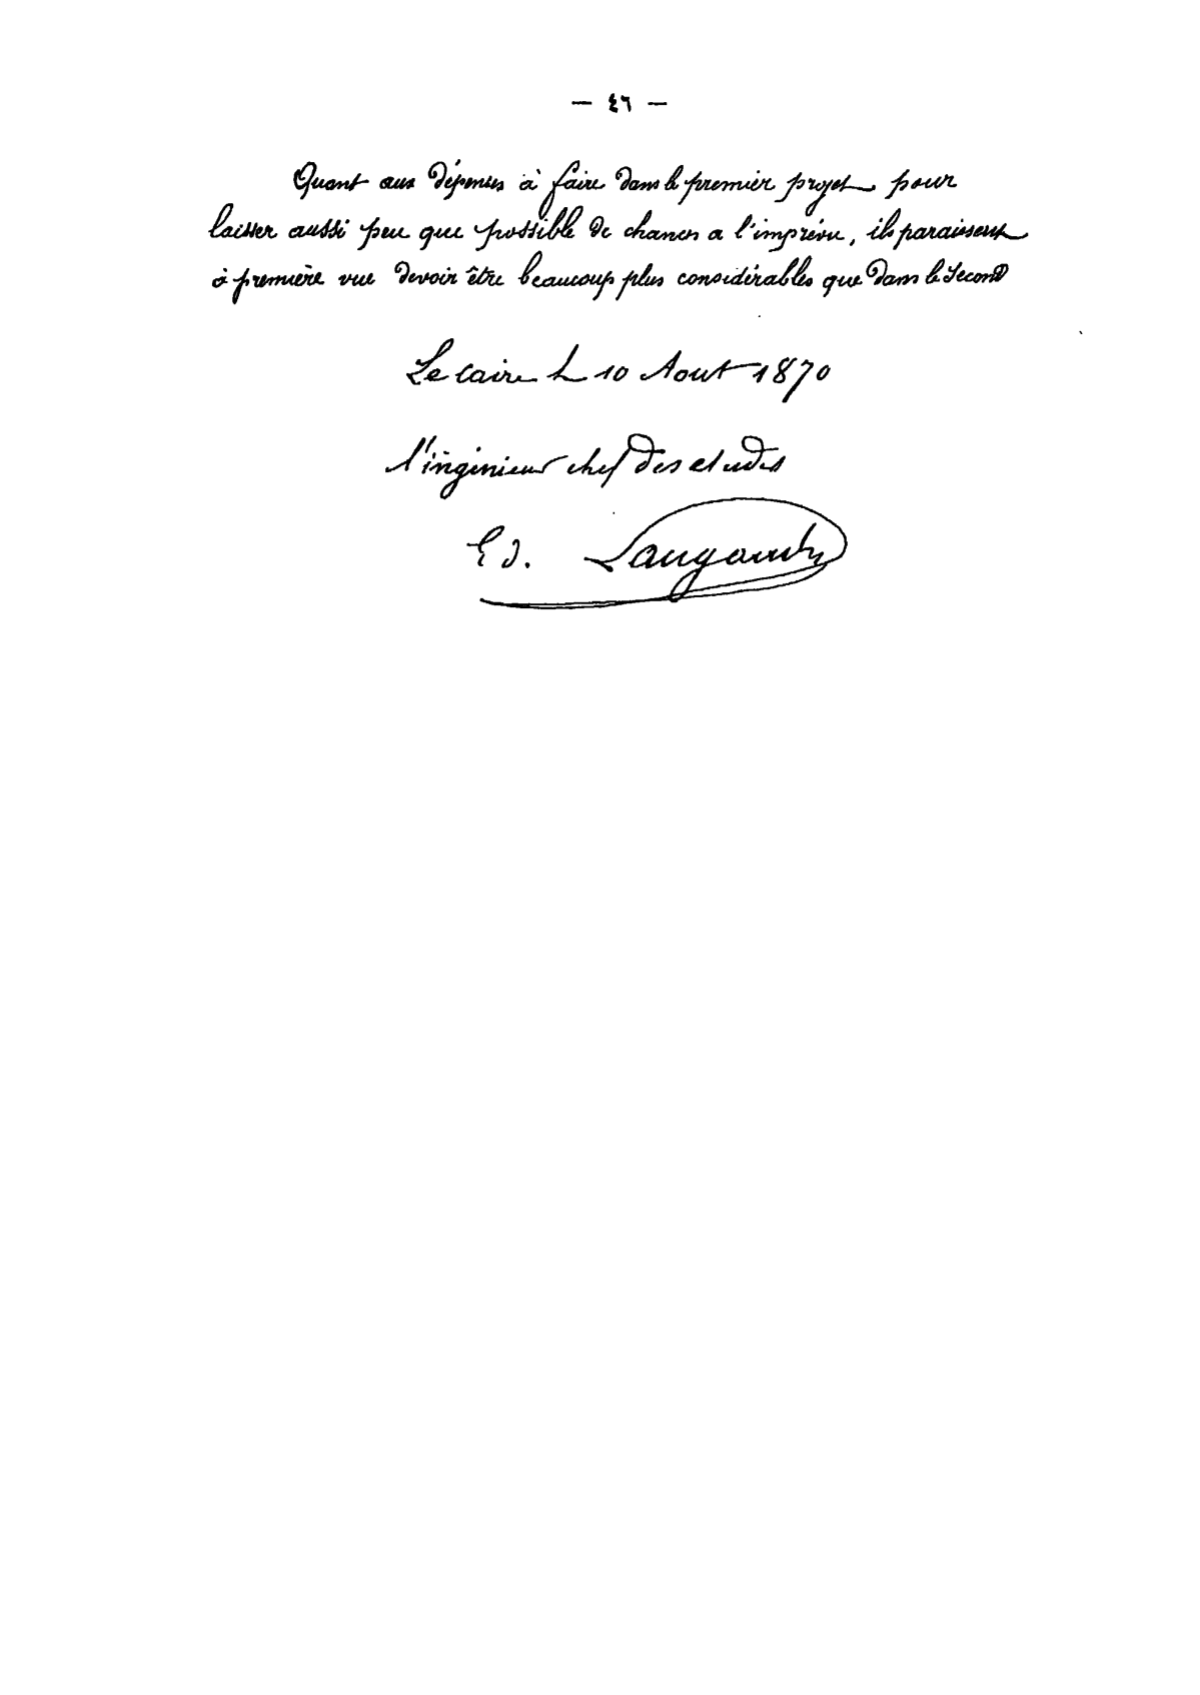 — ٤٦ —
Quant aux dépenses à faire dans le premier projet pour
laisser aussi peu que possible de chances a l'imprévu, ils paraissent
à première vue devoir être beaucoup plus considérables que dans le second
Le Caire le 10 Aout 1870
l'ingénieur chef des etudes
Ed.